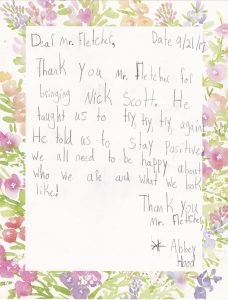 Dear Mr. Fletcher,
Date 9/21/17
Thank you Mr. Fletcher for
bringing Nick Scott. He
taught us to try, try, try again.
He told us to Stay Positive
we all need to be happy about
who we are and what we look
like!
Thank you
Mr. Fletcher,
Abbey
Hood